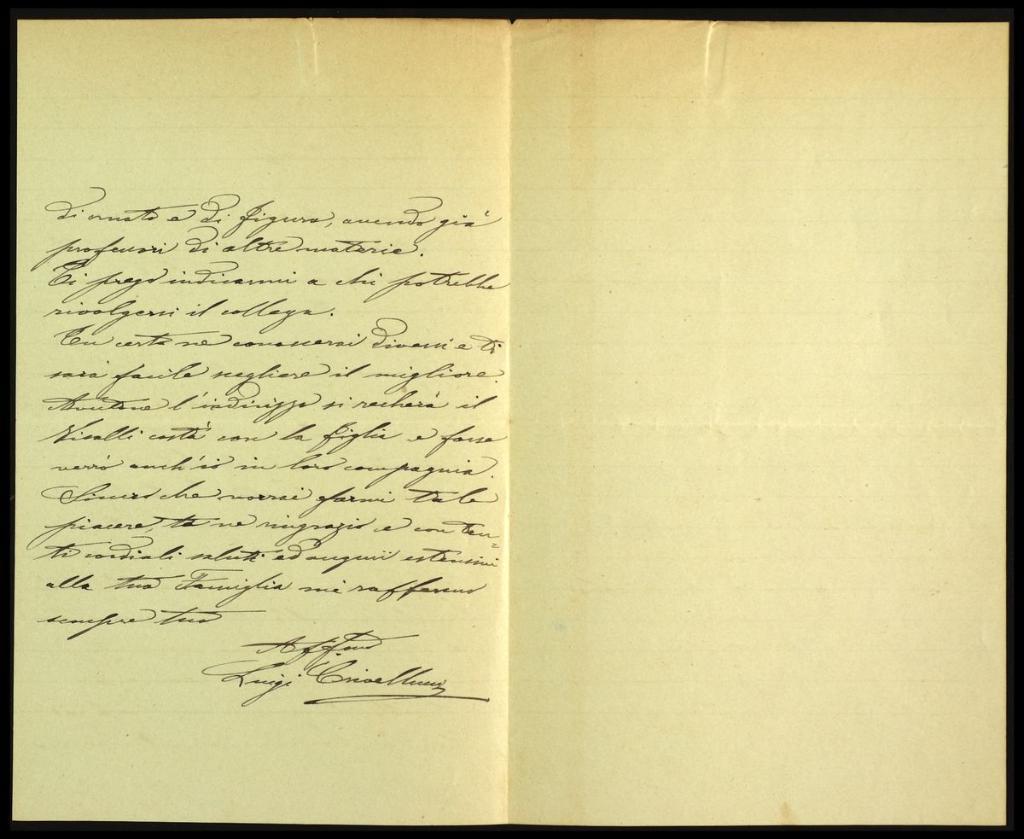 di ornato e di figura, avendo già
professori di altre materie.
Ti prego indicarmi a chi potrebbe
rivolgersi il collega.
Tu certo ne conoscerai diversi e ti
sarà facile scegliere il migliore.
Avutone l'indirizzo si recherà il
Visalli costà con la figlia e forse
verrò anch'io in loro compagnia.
Sicuro che vorrai farmi tale
piacere, te ne ringrazio e con tan=
ti cordiali saluti ed auguri estensivi
alla tua Famiglia mi raffermo
sempre tuo
Affmo
Luigi